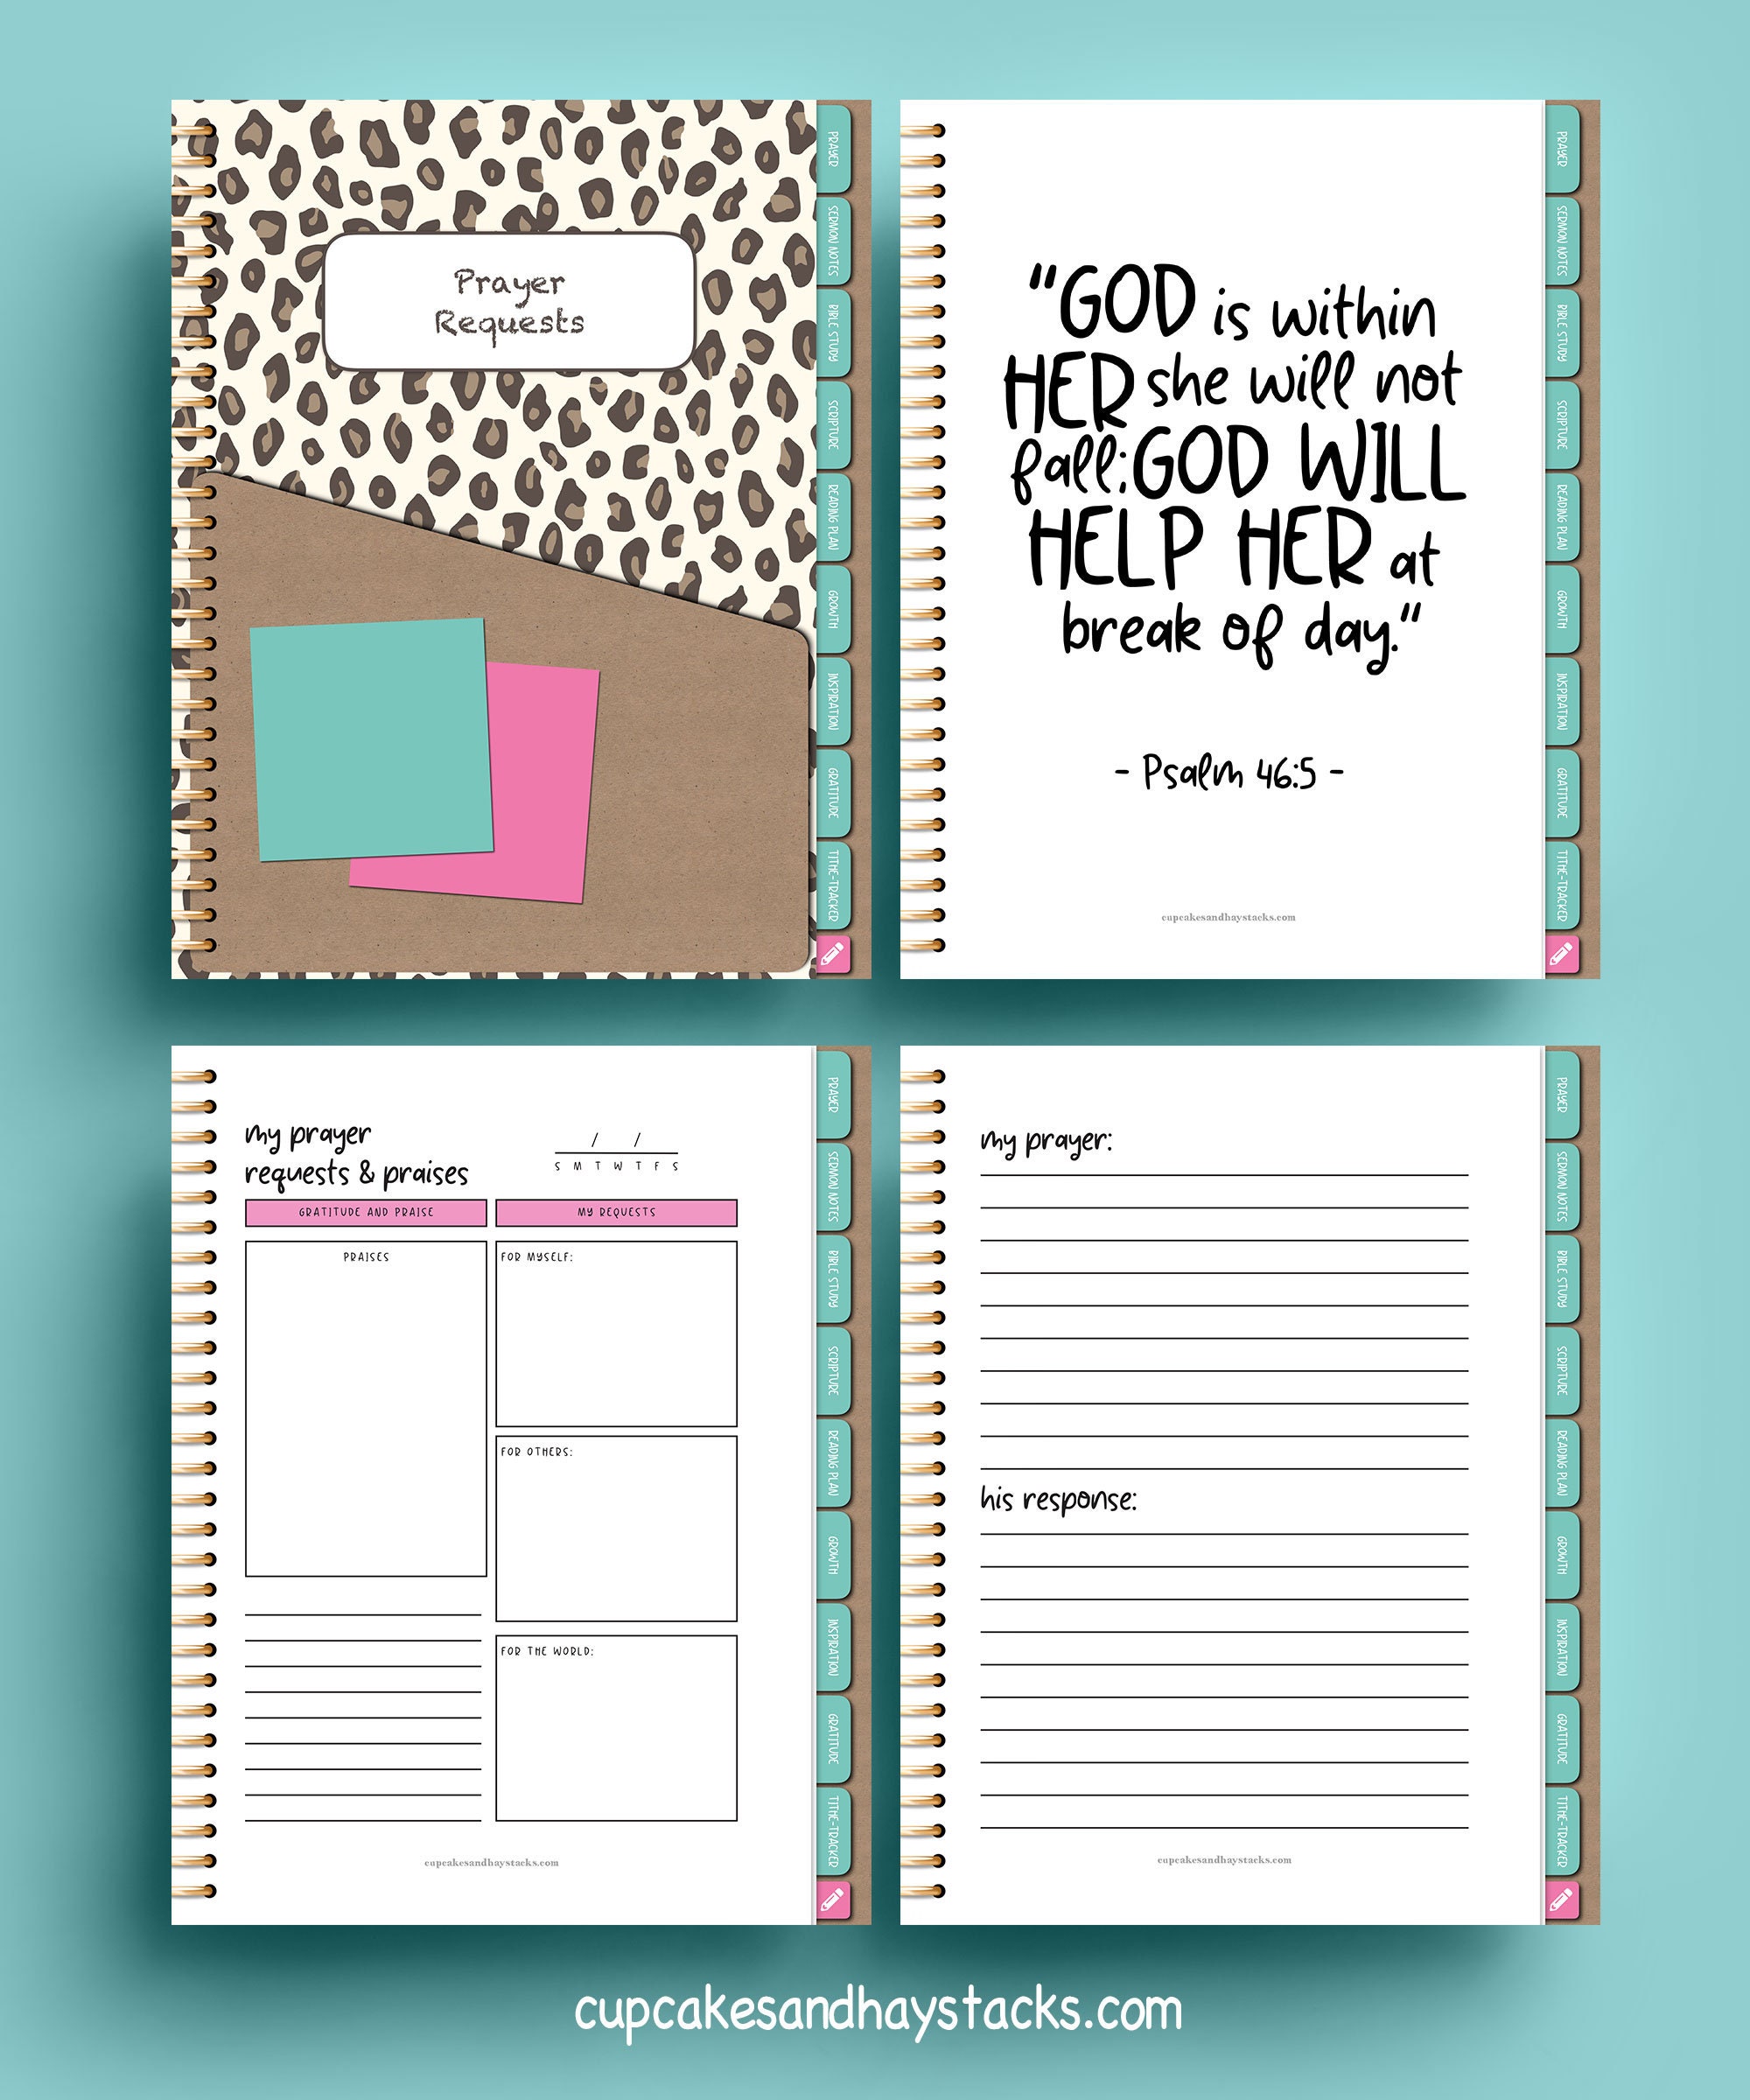 Prayer
Requests
PRAYER
SERMON NOTES
BIBLE STUDY
SCRIPTURE
READING PLAN
GROWTH
INSPIRATION
GRATITUDE
TITHE-TRACKER
"GOD is within
HER she will not
fall; GOD WILL
HELP HER at
break of day."
- Psalm 46:5 -
cupcakesandhaystacks.com
PRAYER
SERMON NOTES
BIBLE STUDY
SCRIPTURE
READING PLAN
GROWTH
INSPIRATION
GRATITUDE
TITHE-TRACKER
my prayer
requests & praises
/ /
S M T W T F S
GRATITUDE AND PRAISE
MY REQUESTS
PRAISES
FOR MYSELF:
FOR OTHERS:
FOR THE WORLD:
cupcakesandhaystacks.com
PRAYER
SERMON NOTES
BIBLE STUDY
SCRIPTURE
READING PLAN
GROWTH
INSPIRATION
GRATITUDE
TITHE-TRACKER
my prayer:
his response:
cupcakesandhaystacks.com
PRAYER
SERMON NOTES
BIBLE STUDY
SCRIPTURE
READING PLAN
GROWTH
INSPIRATION
GRATITUDE
TITHE-TRACKER
cupcakesandhaystacks.com